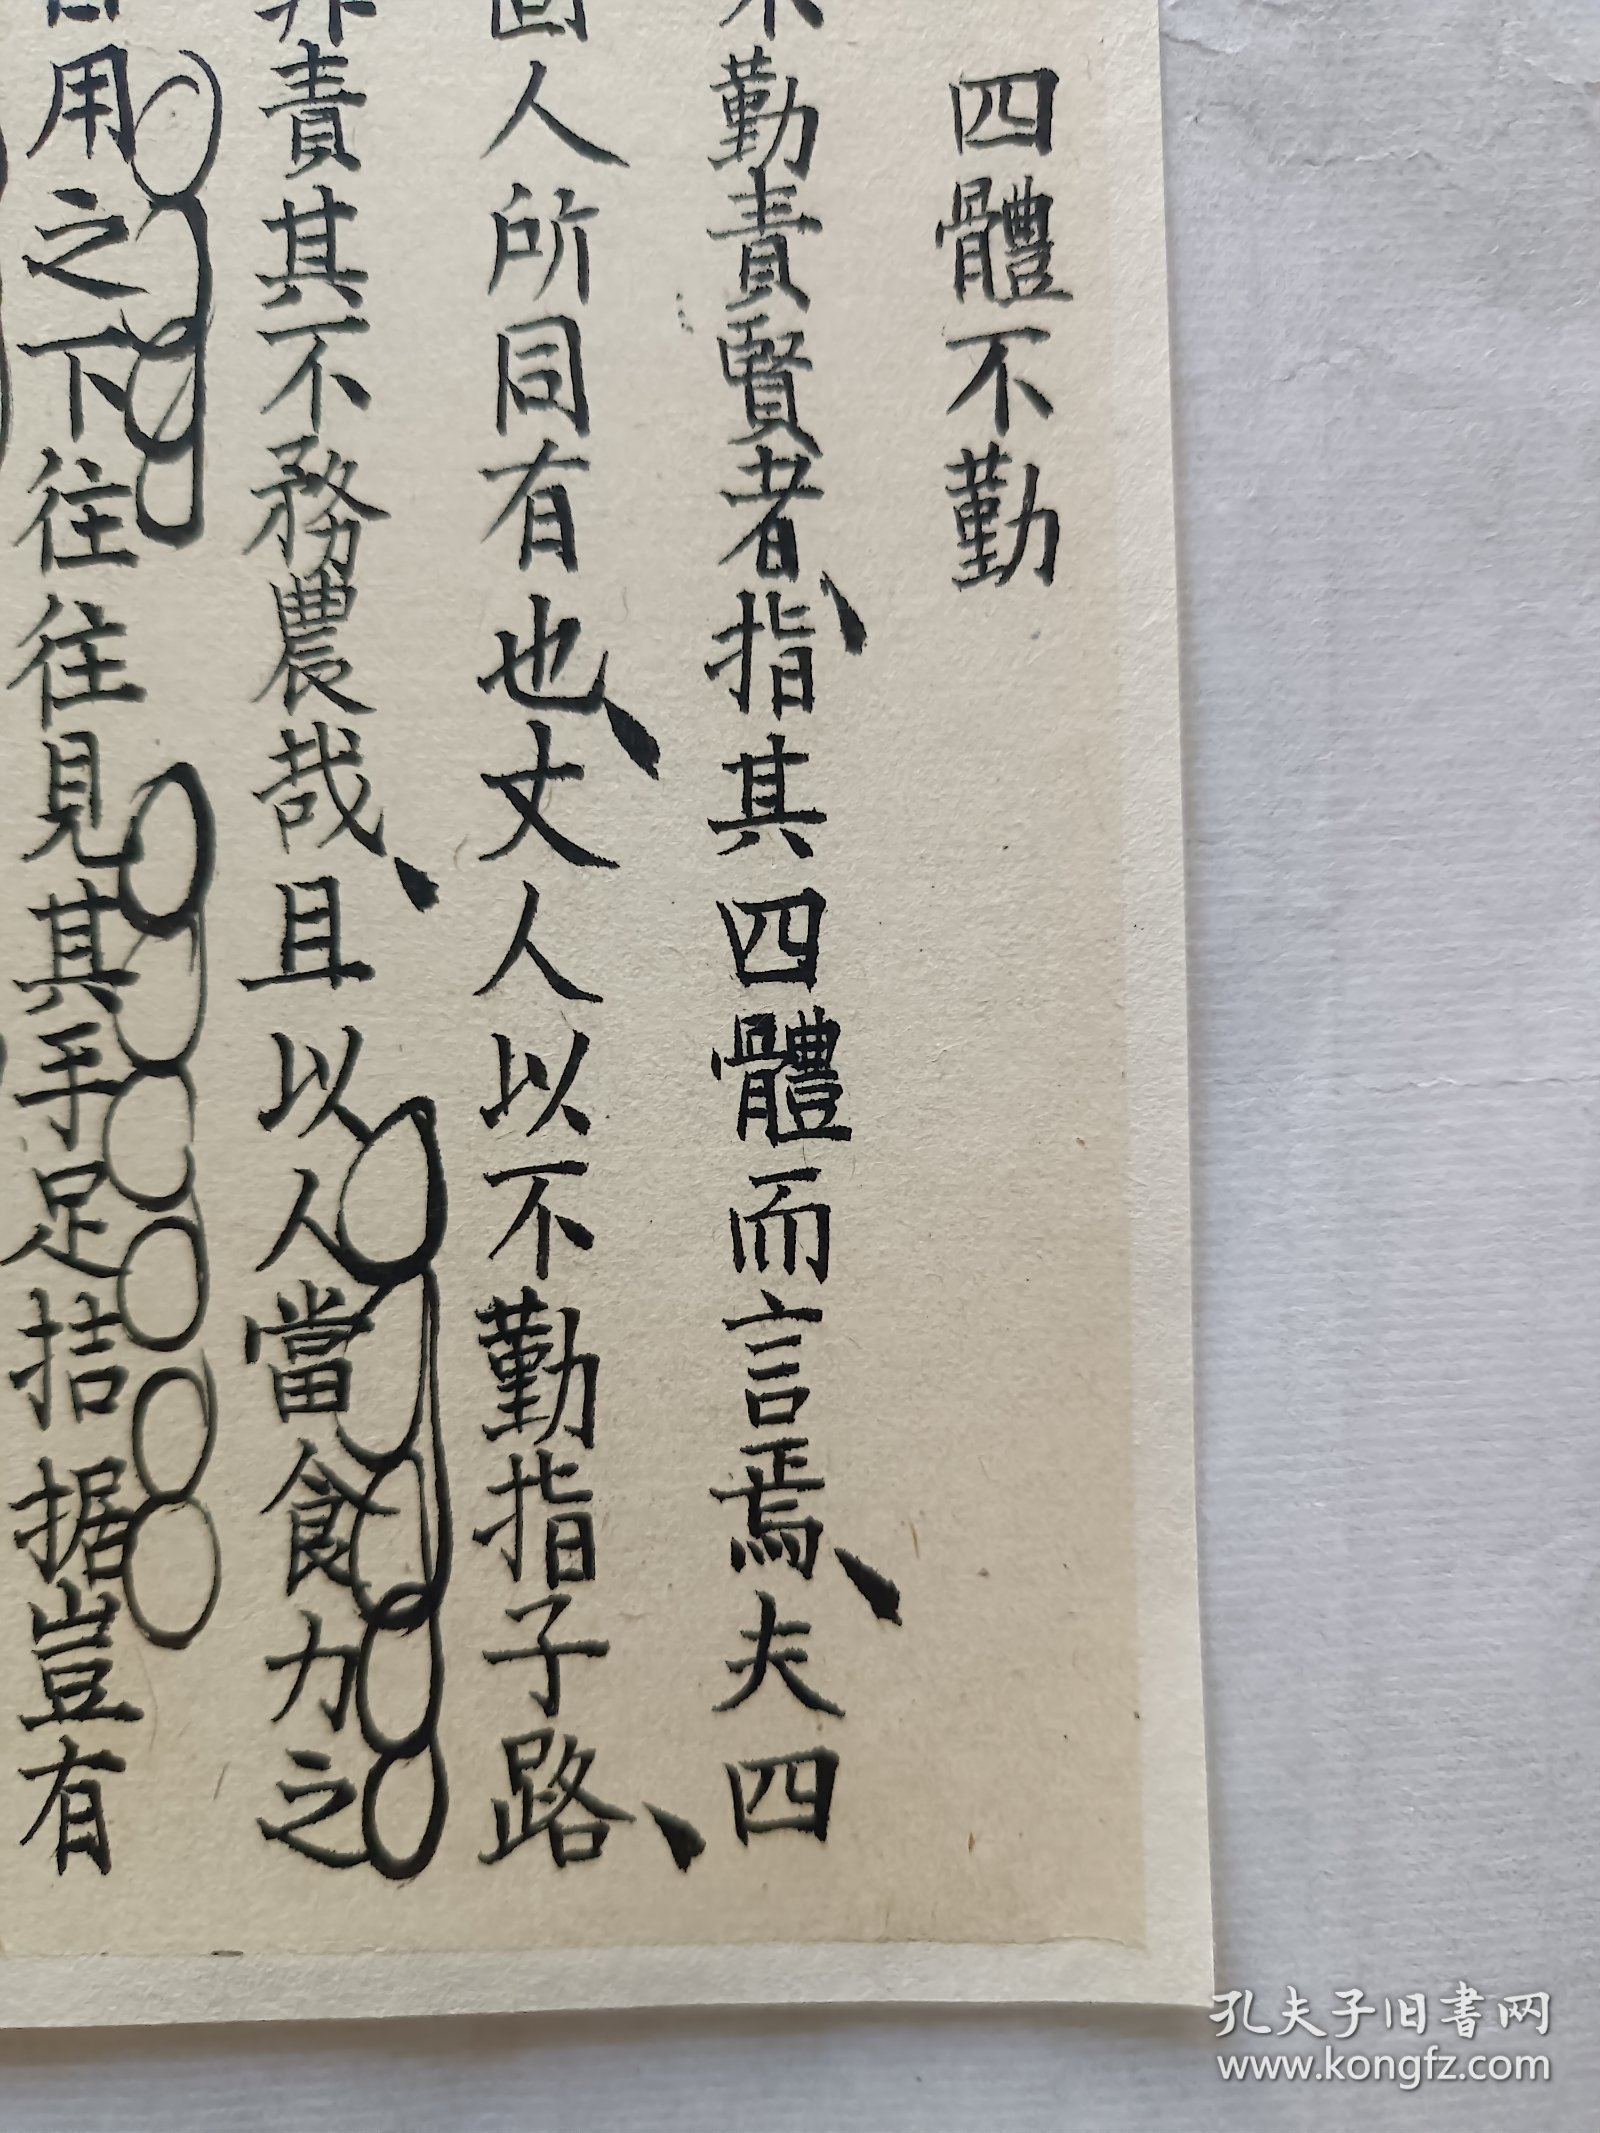 四體不勤
勤責賢者指其四體而言焉夫四
人所同有也丈人以不勤指子路
責其不務農哉且以人當食力之
用之下往往見其手足拮据豈有
孔夫子旧书网
www.kongfz.com